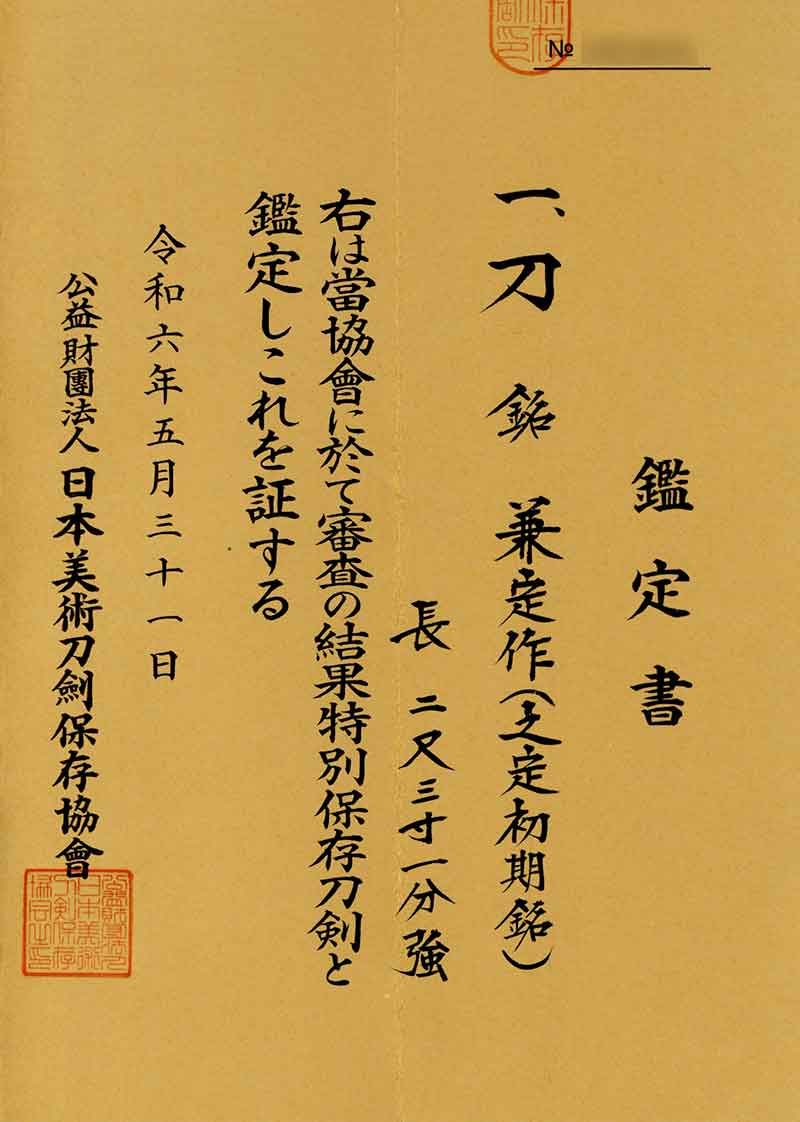 №
鑑定書
一、刀 銘 兼定作(之定初期銘)
長 二尺三寸一分強
右は當協會に於て審査の結果特別保存刀剣と
鑑定しこれを証する
令和六年五月三十一日
公益財團法人 日本美術刀劍保存協會